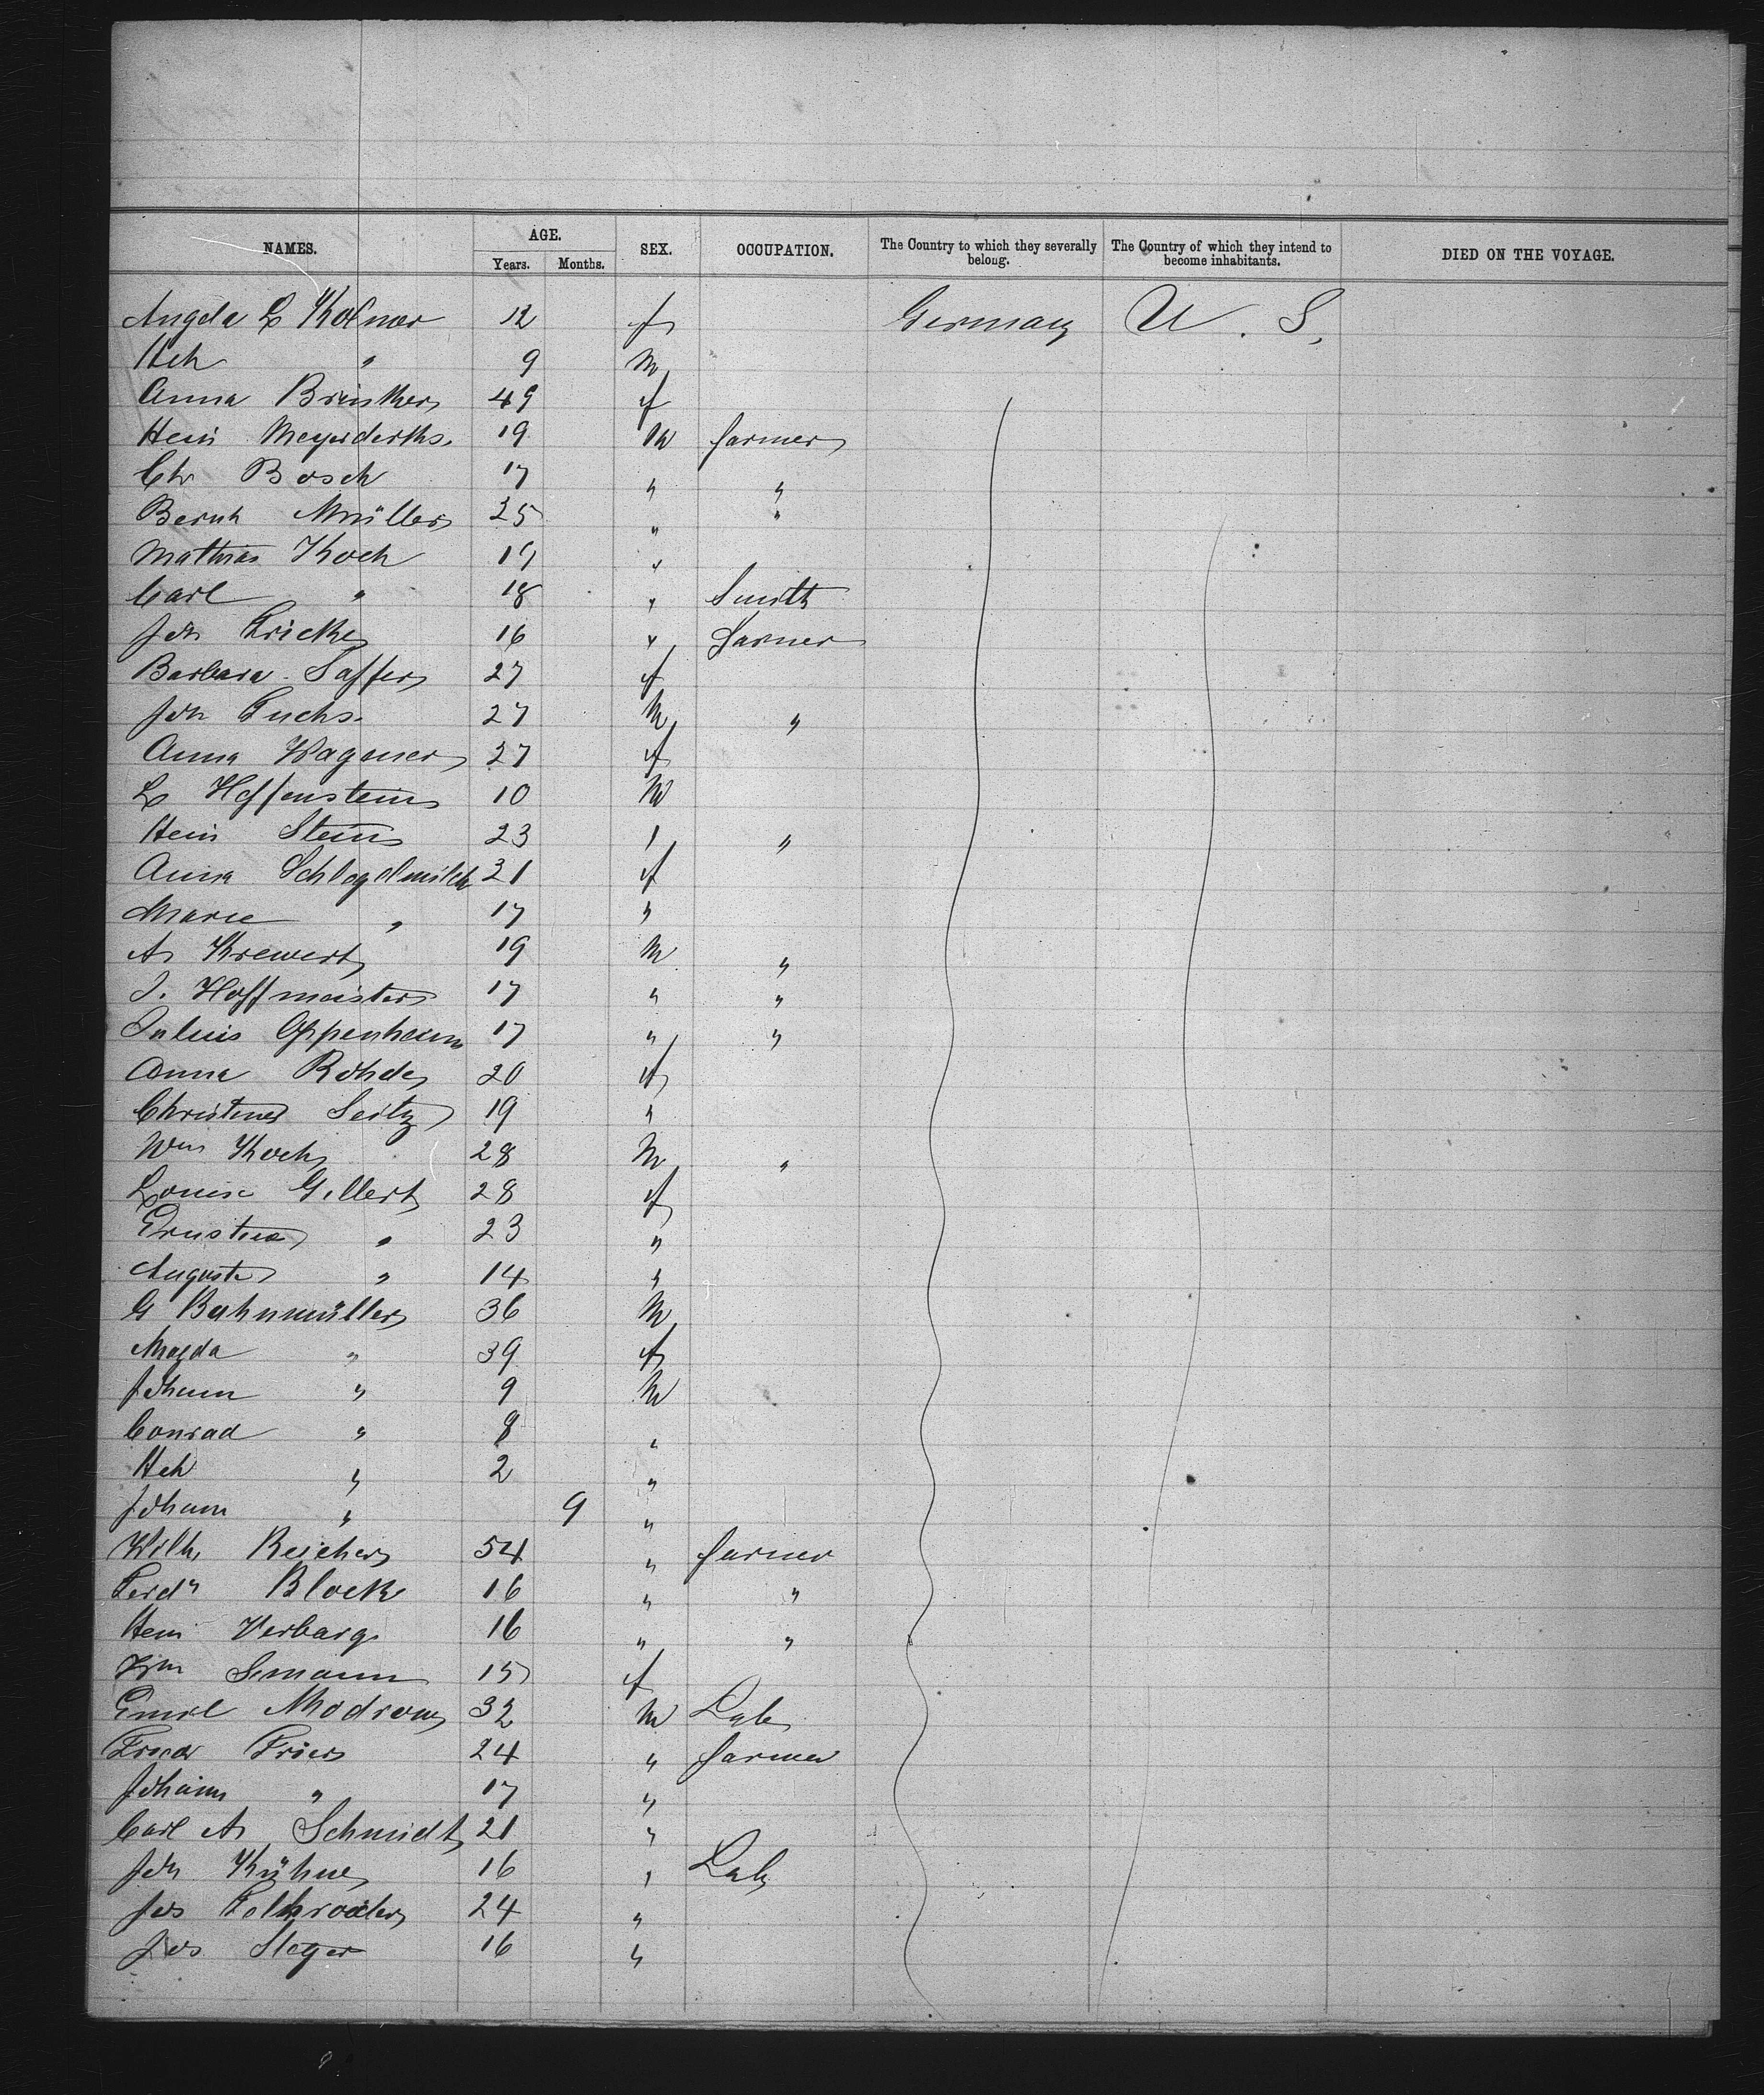 NAMES. AGE. Years. Months. SEX. OCCUPATION. The Country to which they severally belong. The Country of which they intend to become inhabitants. DIED ON THE VOYAGE.
Angela L Kolmer 12 f Germany U. S.
Hch " 9 M
Anna Brinker 49 f
Hein Meyerderks 19 M farmer
Chr Bosch 17 " "
Bernh Müller 25 " "
Mathias Koch 17 "
Carl " 18 " Smith
Joh Fricke 16 " farmer
Barbara Saffer 27 f
Joh Fuchs 27 M "
Anna Wagner 27 f
L Hoffenstein 10 M
Hein Stein 23 " "
Anna Schlegelmilch 31 f
Marie " 17 "
A Krewert 19 M "
J. Hoffmeister 17 " "
Julius Oppenheim 17 " "
Anna Rohde 20 f
Christine Seitz 19 "
Wm Koch 28 M "
Louise Gellert 28 f
Ernstine " 23 "
Auguste " 14 "
G Bahnmüller 36 M
Magda " 39 f
Johann " 9 M
Conrad " 8 "
Hch " 2 "
Johann " 9 "
Wilh Reicher 54 " farmer
Ferdn Block 16 " "
Hein Verbarg 16 " "
Semann 15 f
Emil Modrow 32 M Lab
Fries 24 " farmer
Johann " 17 "
Carl A Schmidt 21 "
Joh Kühne 16 " Lab
Jos 24 "
Jos Steger 16 "